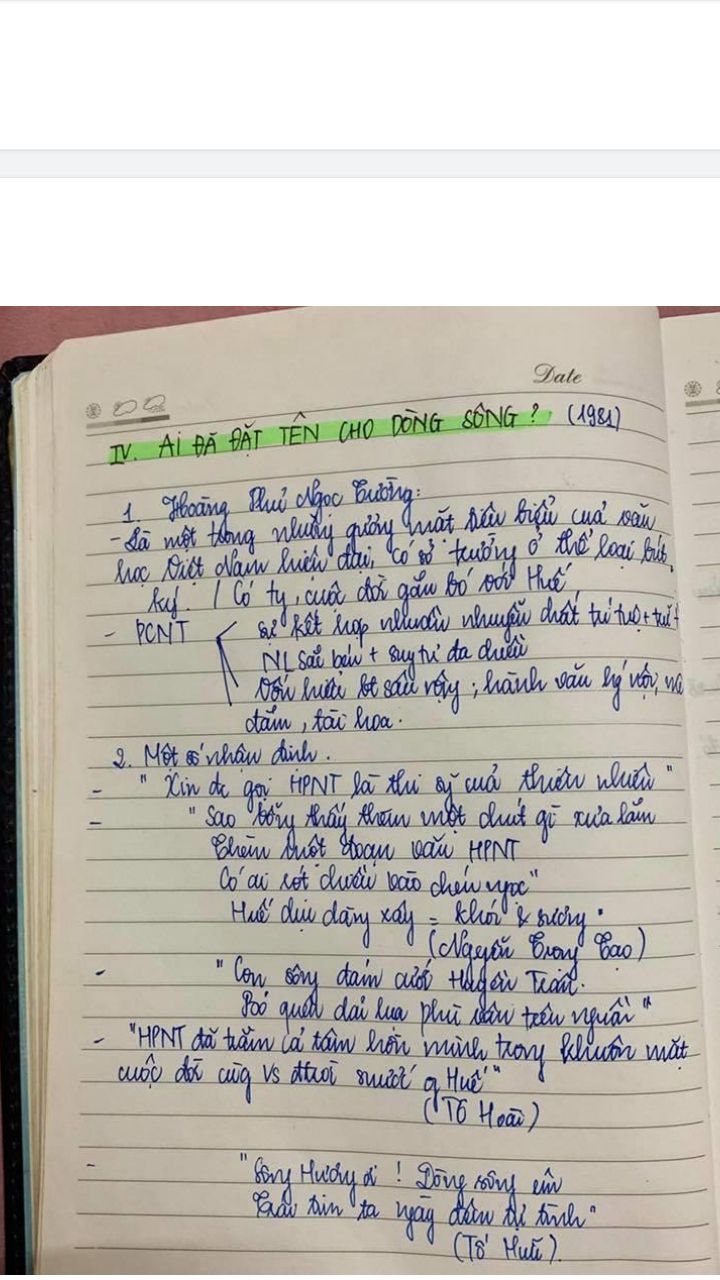 Date
IV. AI ĐÃ ĐẶT TÊN CHO DÒNG SÔNG ? (1981)
1. Hoàng Phủ Ngọc Tường:
- Là một trong những gương mặt tiêu biểu của văn
học Việt Nam hiện đại, có sở trường ở thể loại bút
ký. / Có ty, cuộc đời gắn bó với Huế
- PCNT sự kết hợp nhuần nhuyễn chất trí tuệ + trữ t
NL sắc bén + suy tư đa chiều
Vốn hiểu bt sâu rộng ; hành văn hg nội,
đắm, tài hoa.
2. Một số nhận định.
- " Xin đc gọi HPNT là thi sỹ của thiên nhiên "
- " Sao bỗng thấy thèm một chút gì xưa lắm
Thèm một đoạn văn HPNT
Có ai rót chiều vào chén ngọc"
Huế dịu dàng xây = khói & sương.
(Nguyễn Trọng Tạo)
- " Con sông đám cưới Huyền Trân.
Bỏ quên dải lụa phù vân trên nguồn "
- "HPNT đã trầm cả tâm hồn mình trong khuôn mặt
cuộc đời cùg vs đất trời g Huế "
(Tô Hoài)
- " Sông Hương ơi ! Dòng sông êm
Trái tim ta ngày đêm tự tình"
(Tố Hữu).